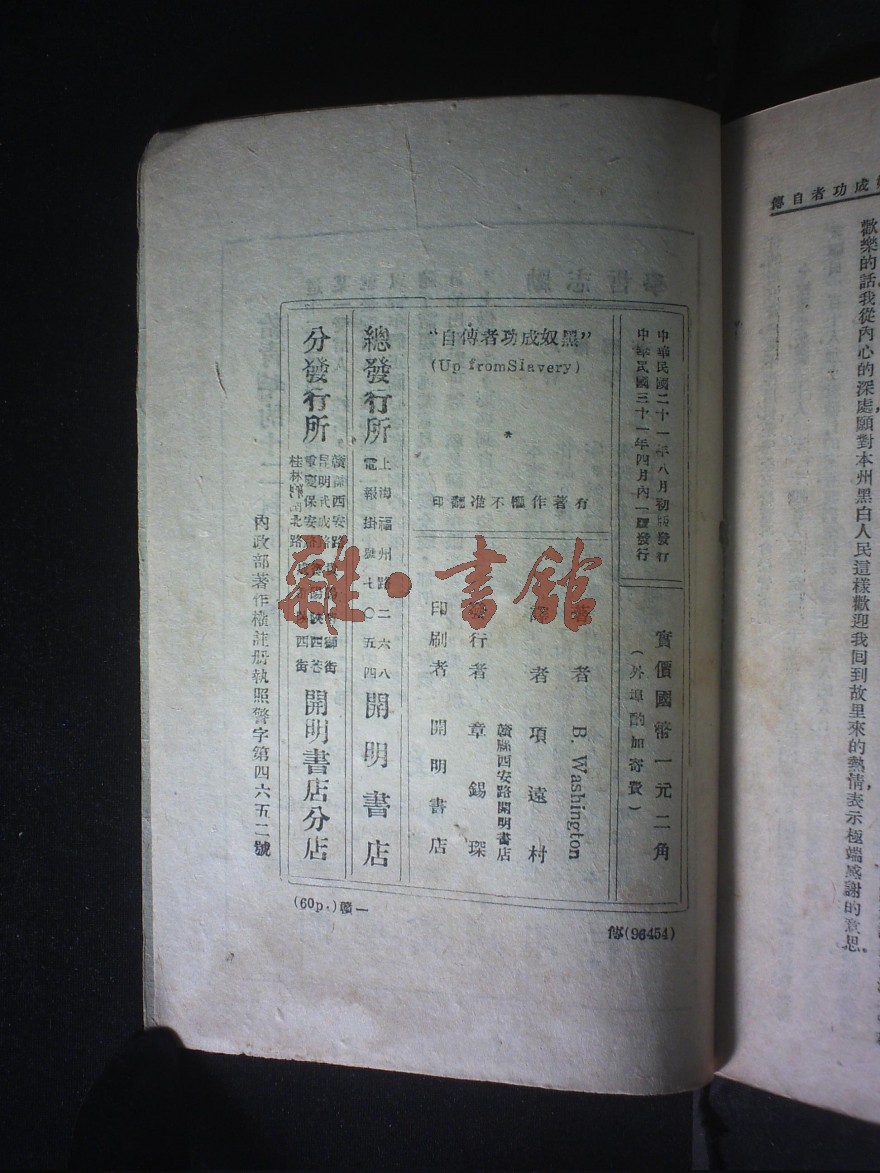 成功者自傳
歡樂的話我從內心的深處願對本州黑白人民這樣歡迎我回到故里來的熱情表示極端感謝的意思。
中華民國二十一年八月初版發行
中華民國三十一年四月內一版發行
實價國幣一元二角
（外埠酌加寄費）
"黑奴成功者自傳"
(Up from Slavery)
有著作權不准翻印
著者 B. Washington
譯者 項遠村
贛縣西安路開明書店
發行者 章錫琛
印刷者 開明書店
總發行所
上海福州路二六八
電報掛號七〇五四
開明書店
分發行所
贛縣西安路
昆明武成路
重慶保安路
桂林 北路
開明書店分店
內政部著作權註册執照警字第四六五二號
(60p.)贛一
傳(96454)
雜·書館